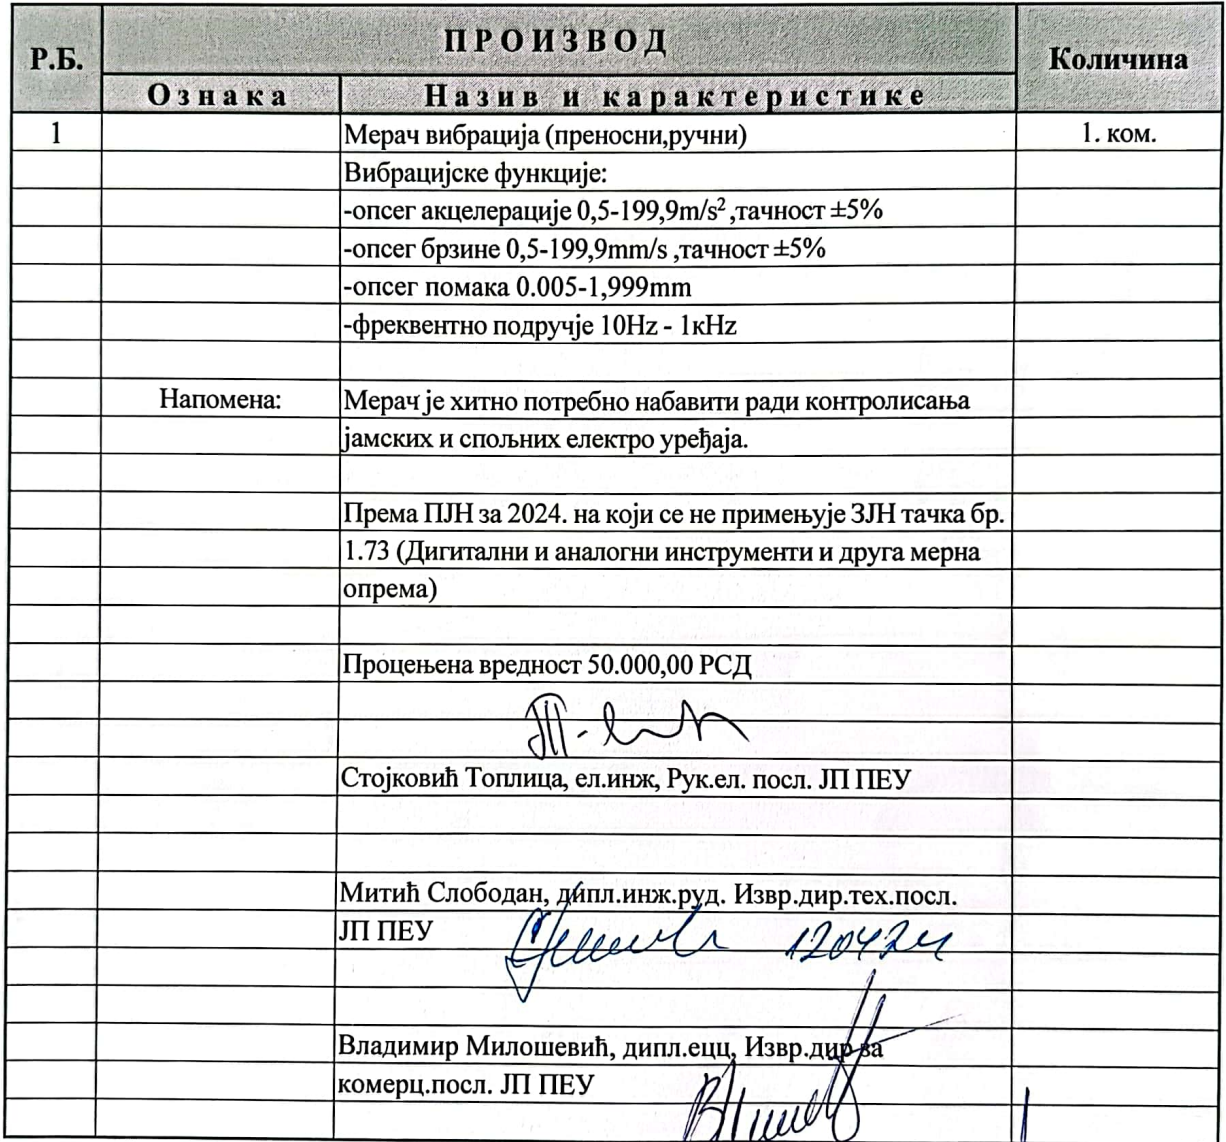 Р.Б.
ПРОИЗВОД
Количина
Ознака
Назив и карактеристике
1
Мерач вибрација (преносни,ручни)
1. ком.
Вибрацијске функције:
-опсег акцелерације 0,5-199,9m/s² ,тачност ±5%
-опсег брзине 0,5-199,9mm/s ,тачност ±5%
-опсег помака 0.005-1,999mm
-фреквентно подручје 10Hz - 1кHz
Напомена:
Мерач је хитно потребно набавити ради контролисања
јамских и спољних електро уређаја.
Према ПЈН за 2024. на који се не примењује ЗЈН тачка бр.
1.73 (Дигитални и аналогни инструменти и друга мерна
опрема)
Процењена вредност 50.000,00 РСД
Стојковић Топлица, ел.инж, Рук.ел. посл. ЈП ПЕУ
Митић Слободан, дипл.инж.руд. Извр.дир.тех.посл.
ЈП ПЕУ
120424
Владимир Милошевић, дипл.ецц, Извр.дир за
комерц.посл. ЈП ПЕУ